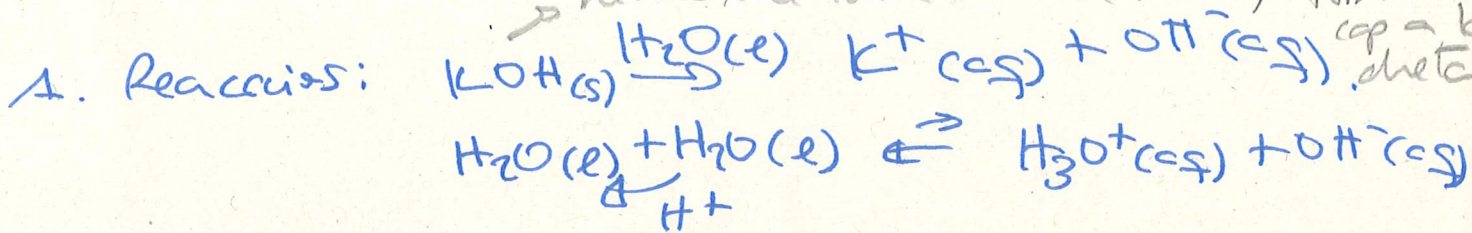 1. Reaccions: KOH(s) H₂O(l) → K⁺(aq) + OH⁻(aq) cap a
dreta
H₂O(l) + H₂O(l) ⇄ H₃O⁺(aq) + OH⁻(aq)
H⁺